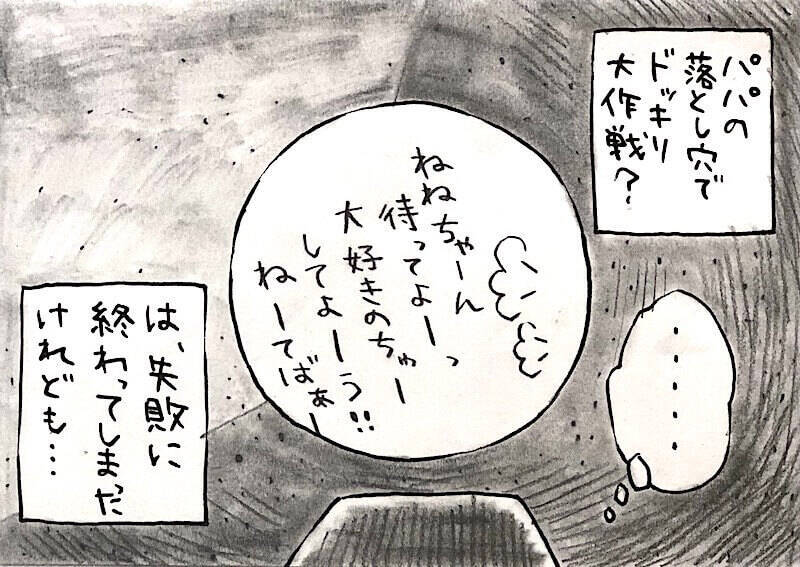 パパの
落とし穴で
ドッキリ
大作戦?
ねねちゃーん
待ってよーっ
大好きのちゅー
してよーう!!
ねーてばぁー
・・・・・
は、失敗に
終わってしまった
けれども…